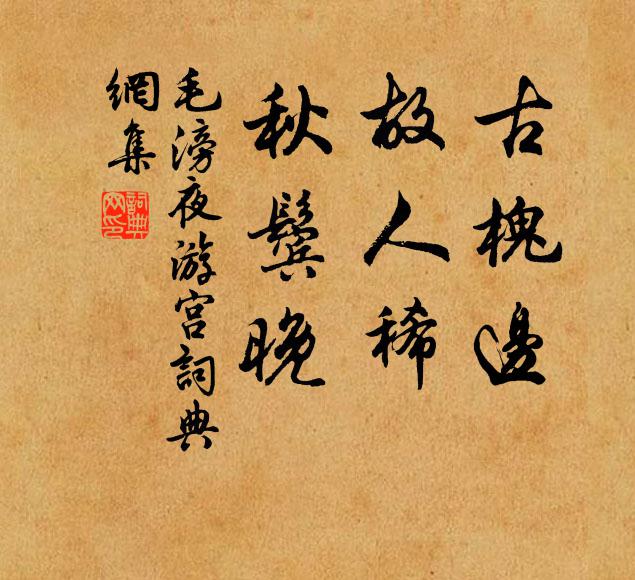 古槐邊
故人稀
秋鬢晚
毛滂夜游宮詞典
網集
詞典
网印